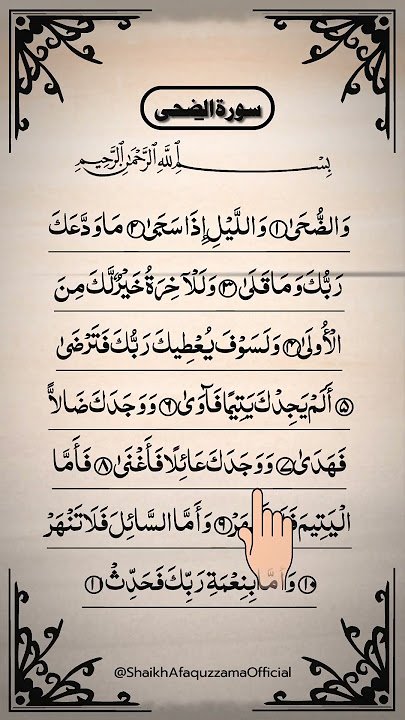 سورة الضحى
بِسْمِ اللَّهِ الرَّحْمَٰنِ الرَّحِيمِ
وَالضُّحَىٰ ١ وَاللَّيْلِ إِذَا سَجَىٰ ٢ مَا وَدَّعَكَ
رَبُّكَ وَمَا قَلَىٰ ٣ وَلَلْآخِرَةُ خَيْرٌ لَّكَ مِنَ
الْأُولَىٰ ٤ وَلَسَوْفَ يُعْطِيكَ رَبُّكَ فَتَرْضَىٰ
٥ أَلَمْ يَجِدْكَ يَتِيمًا فَآوَىٰ ٦ وَوَجَدَكَ ضَالًّا
فَهَدَىٰ ٧ وَوَجَدَكَ عَائِلًا فَأَغْنَىٰ ٨ فَأَمَّا
الْيَتِيمَ ٩ وَأَمَّا السَّائِلَ فَلَا تَنْهَرْ
١٠ وَأَمَّا بِنِعْمَةِ رَبِّكَ فَحَدِّثْ ١١
@ShaikhAfaquzzamaOfficial